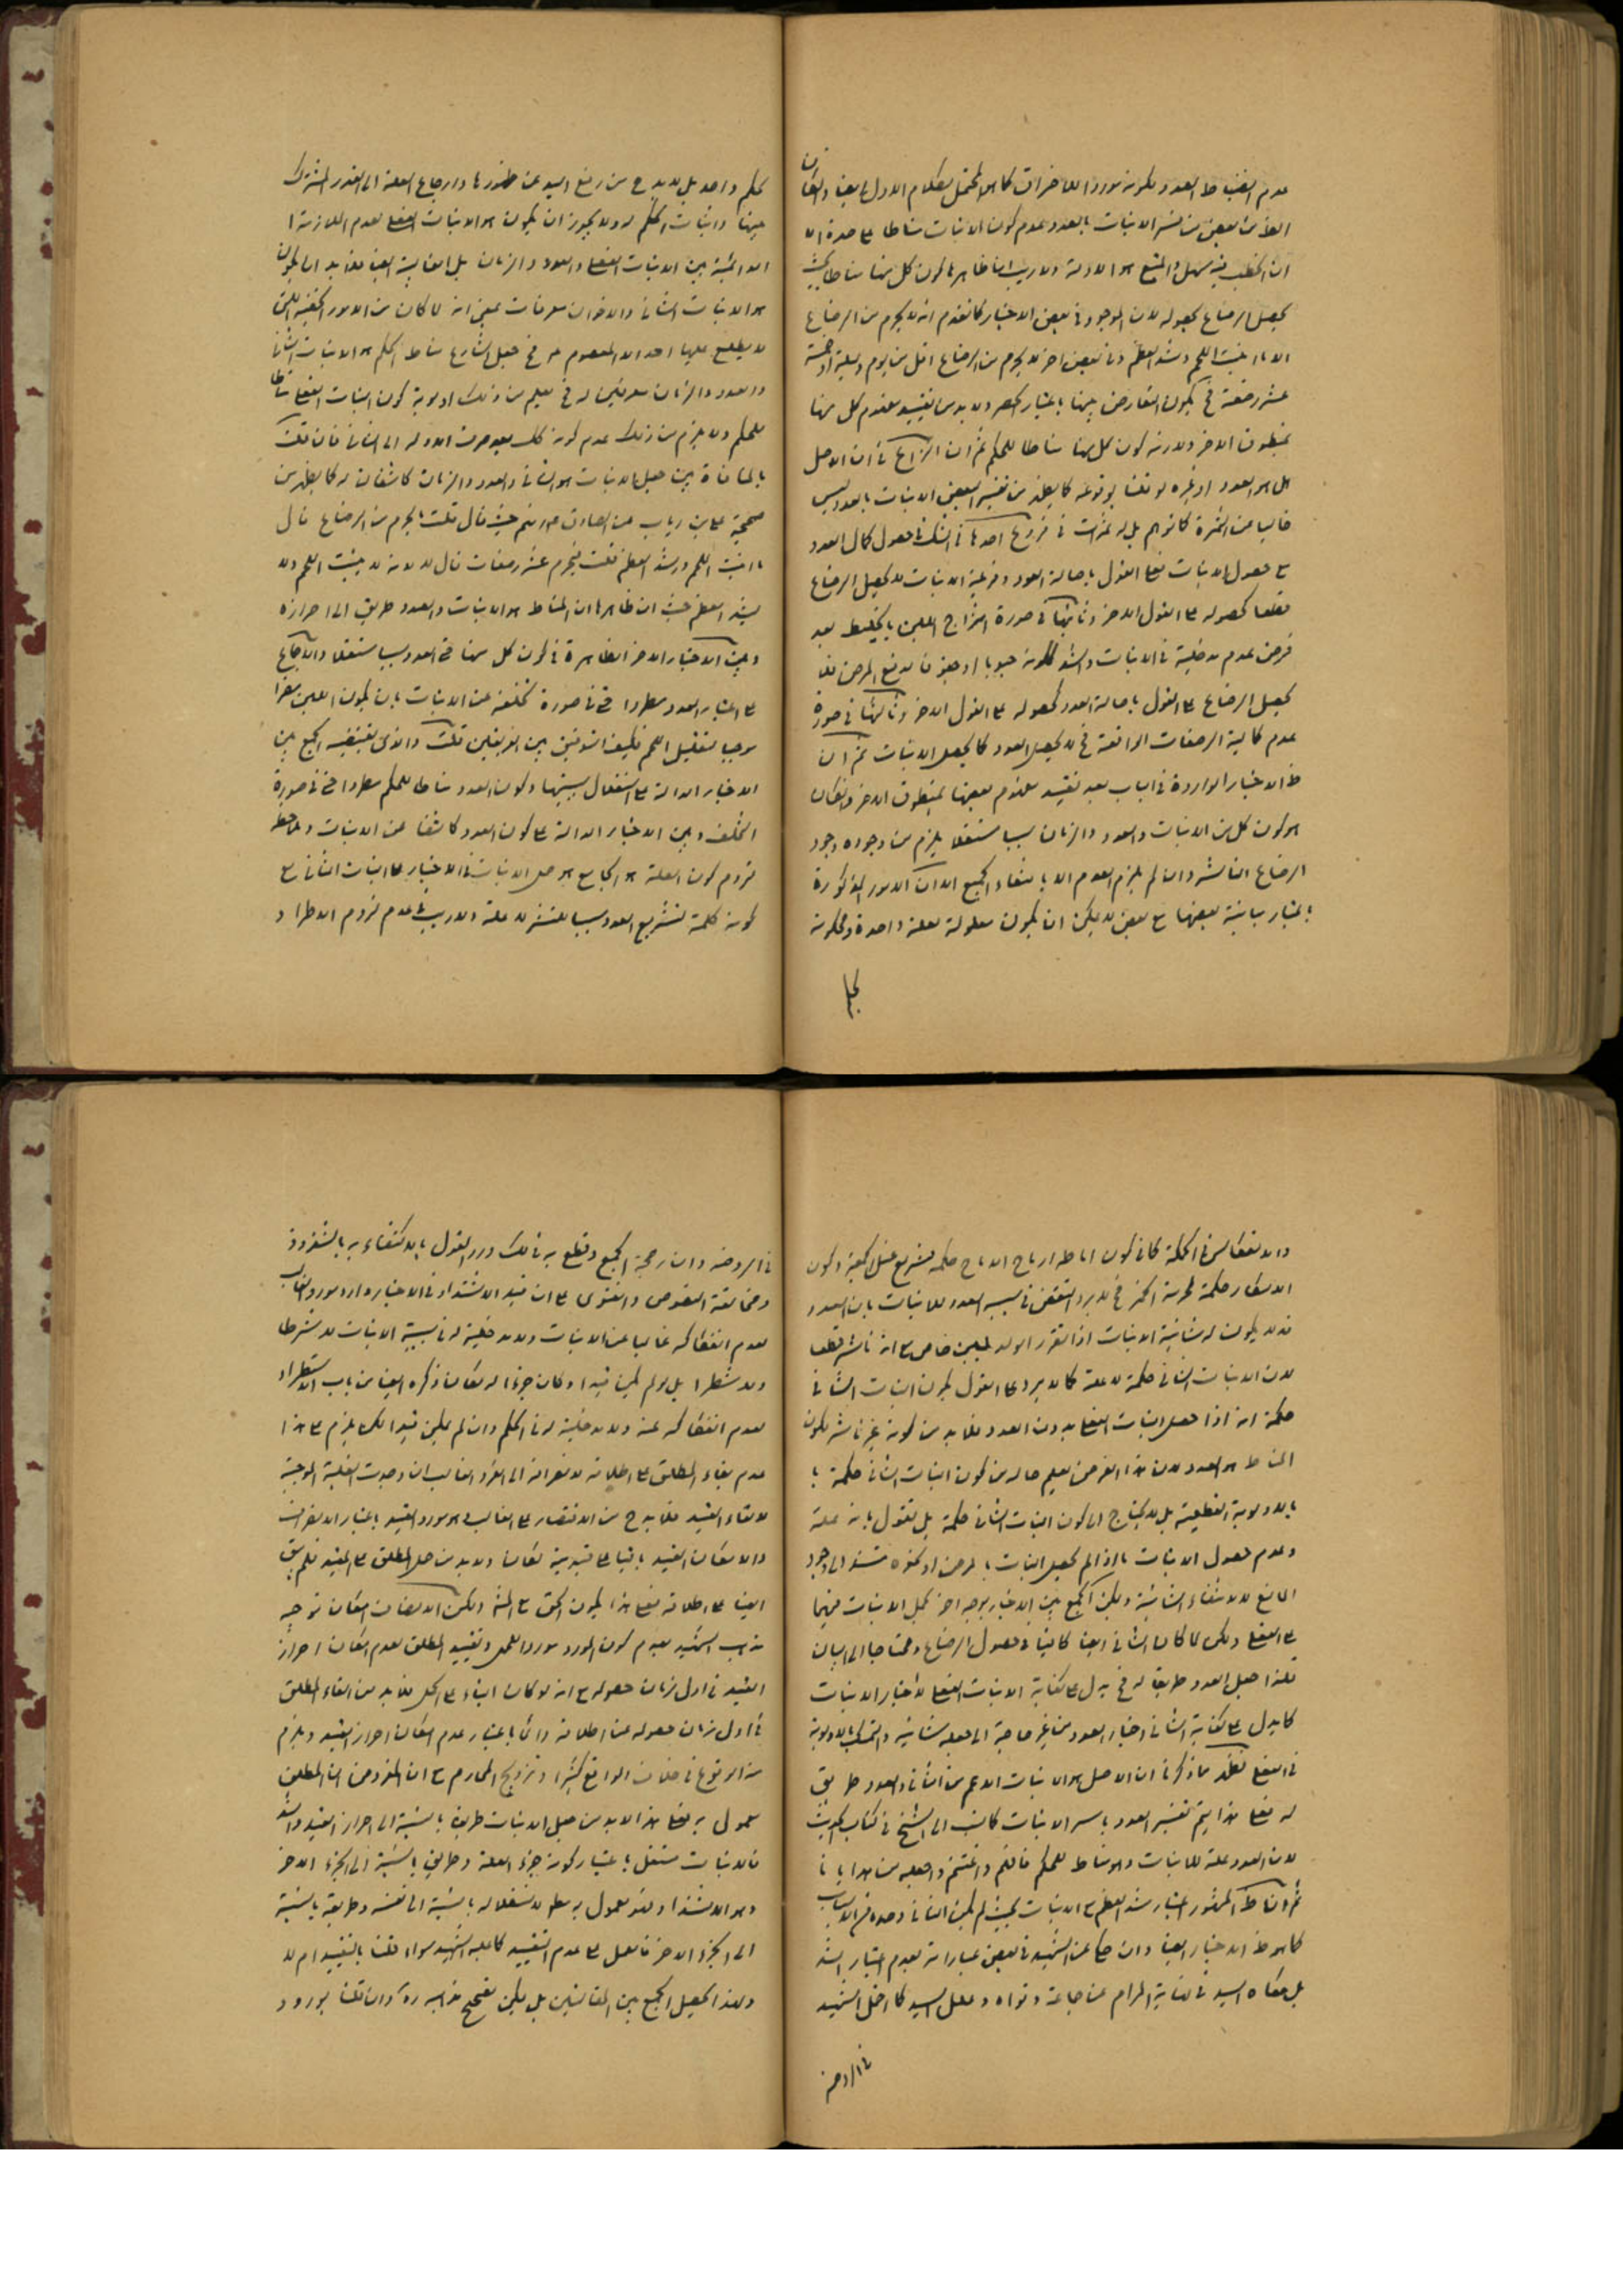 عدم انضباط العدد ولكونه موردا للاخبار كما هو المحتمل لكلام الاول ايضا
من بعض من فسر الانبات بالعدد وعدم كون الانبات مناطا على حدة الا
ان الخطب فيه سهل والمتبع هو الادلة ولا ريب ان ظاهرها كون كل منها مناطا بحيث
يحصل الرضاع بحصوله لان الموجود في بعض الاخبار كما تقدم انه لا يحرم من الرضاع
الا ما انبت اللحم وشد العظم وفي بعض اخر لا يحرم من الرضاع اقل من يوم وليلة او خمسة
عشر رضعة فح يكون التعارض بينها باعتبار الحصر ولا بد من تقييد مفهوم كل منها
بمنطوق الاخر ولازمه كون كل منها مناطا للحكم ثم ان النزاع في ان الاصل
هل هو العدد او غيره لو قلنا بوقوعه كما يظهر من تفسير البعض الانبات بالعدد ليس
خاليا عن الثمرة كما توهم بل له ثمرات في فروع احدها في الشك في حصول كمال العدد
مع حصول الانبات فعلى القول باصالة العدد وفرعية الانبات لا يحصل الرضاع
قطعا كحصوله على القول الاخر وثانيها في صورة امتزاج اللبن بالخليط بعد
فرض عدم مدخلية في الانبات والشد
يحصل الرضاع على القول باصالة العدد كحصوله على القول الاخر وثالثها في صورة
عدم كمالية الرضعات الواقعة فح لا يحصل العدد كما يحصل الانبات ثم ان
ظ الاخبار الواردة في الباب بعد تقييد مفهوم بعضها بمنطوق الاخر وان كان
هو كون كل من الانبات والعدد والزمان سببا مستقلا يلزم من وجوده وجود
الرضاع الناشر وان لم يلزم العدم الا بانتفاء الجميع الا ان الامور المذكورة
باعتبار مباينة بعضها مع بعض لا يمكن ان يكون معلولة لعلة واحدة ومحكومة
بحكم
بحكم واحد بل لا بد ح من رفع اليد عن ظهورها وارجاع العلة الى القدر المشترك
بينها واثبات الحكم له ولا يجوز ان يكون هو الانبات الفعلي لعدم الملازمة
الدائمية بين الانبات الفعلي والعدد والزمان بل الغالبية ايضا فلا بد ان يكون
هو الانبات الشاني والاخران معرفات بمعنى انه لما كان من الامور الخفية التي
لا يطلع عليها احد الا المعصوم فح جعل الشارع مناط الحكم هو الانبات الشاني
والعدد والزمان معرفين له فح يعلم من ذلك اولوية كون انبات الفعلي مناطا
للحكم ولا يلزم من ذلك عدم كونه كك الى الثاني فان قلت
بالمنافاة بين جعل الانبات هو الشاني والعدد والزمان كاشفان له كما يظهر من
صحيحة على بن رئاب عن الصادق حيث قال قلت ما يحرم من الرضاع قال
ما انبت اللحم وشد العظم قلت فيحرم عشر رضعات قال لا لانه لا ينبت اللحم ولا
يشد العظم حيث ان ظاهرها ان المناط هو الانبات والعدد طريق الى احرازه
وبين الاخبار الاخر الظاهرة في كون كل منها حتى العدد سببا مستقلا والاجماع
على اعتبار العدد مطردا حتى في صورة تخلفه عن الانبات بان يكون اللبن مضرا
موجبا لتقليل اللحم فكيف التوفيق بين الفريقين قلت والذي يقتضيه الجمع بين
الاخبار الدالة على استقلال سببيتها وكون العدد مناطا للحكم مطردا حتى في صورة
التخلف وبين الاخبار الدالة على كون العدد كاشفا عن الانبات وملاحظة
لزوم كون العلة هو الجامع هو حمل الانبات في الاخبار على انبات الشاني مع
كونه حكمة لتشريع العدد سببا للنشر لا علة ولا ريب في عدم لزوم الاطراد و
والانعكاس في الحكمة كما في كون اماطة ارياح الاباط حكمة لتشريع غسل الجمعة وكون
الاسكار حكمة لحرمة الخمر فح لا يرد النقض في سببية العدد للانبات بان العدد
قد لا يكون له شانية الانبات اذا تضرر الولد بلبن خاص مع انه ناشر قطعا
لان الانبات الشاني حكمة لا علة كما لا يرد على القول بكون انبات الشاني
حكمة انه اذا حصل انبات الفعلي بدون العدد فلا بد من كونه غير ناشر لكون
المناط هو العدد لان هذا الفرض يعلم حاله من كون انبات الشاني حكمة
بالاولوية القطعية بل لا يحتاج الى كون انبات الشاني حكمة بل نقول بانه علة
وعدم حصول الانبات فيما اذا لم يحصل انبات بالمرض او نحوه مستند الى وجود
المانع لا لانتفاء الشانية ويمكن الجمع بين الاخبار بوجه اخر بحمل الانبات فيها
على الفعلي ولكن لما كان الشاني ايضا كافيا في حصول الرضاع ومحتاجا الى البيان
فلذا جعل العدد طريقا له فح يدل على كفاية الانبات الفعلي لاخبار الانبات
كما يدل على كفاية الشاني اخبار العدد من غير حاجة الى جعله شانية والتمسك بالاولوية
في الفعلي فظهر مما ذكرنا ان الاصل هو الانبات الاعم من الشاني والعدد طريق
له فعلى هذا يتم تفسير العدد باسر الانبات كما نسب الى الشيخ في كتاب الحديث
لان العدد علة للانبات وهو مناط للحكم فافهم واغتنم واجعله من هدايانا
ثم مناط المشهور اعتبار شد العظم مع الانبات بحيث لم يكف الثاني وحده في الباب
كما هو ظ الاخبار ايضا وان حكي عن الشهيد في بعض عباراته بعدم اعتبار الشد
بل حكاه السيد في نهاية المرام عن جماعة وقواه
في الروضة
في الروضة وان رجحه الجمع وقطع به في ذلك ورد القول بالاكتفاء به بالشذوذ
ومخالفة النصوص والفتوى على ان قيد الاشتداد في الاخبار وارد مورد الغالب
لعدم انفكاكه غالبا عن الانبات ولا مدخلية له في سببية الانبات لا شرطا
ولا شطرا بل لو لم يكن قيدا وكان جزءا له لكان ذكره ايضا من باب الاستطراد
لعدم انفكاكه عنه ولا مدخلية له في الحكم وان لم يكن قيدا لكن يلزم على هذا
عدم بقاء المطلق على اطلاقه لانصرافه الى الفرد الغالب ان وصلت الغلبة الموجبة
لالغاء القيد فلا بد ح من الاقتصار على الغالب وهو مورد القيد باعتبار الانصراف
والا لكان القيد باقيا على قيديته لكان ولا بد من حمل المطلق على المقيد فلم يبق
ايضا على اطلاقه فعلى هذا يكون الحق مع المشهور ولكن الانصاف امكان توجيه
مذهب الشهيد بعدم كون المورد موردا للحمل وتقييد المطلق لعدم امكان احراز
القيد في اول زمان حصوله مع انه لو كان البناء على الحمل فلا بد من القاء المطلق
في اول زمان حصوله عن اطلاقه دائما باعتبار عدم امكان احراز القيد ويلزم
منه الوقوع في خلاف الواقع كثيرا وتزويج المحارم مع ان المفروض ان المطلق
معمول به فعلى هذا لا بد من جعل الانبات طريقا بالنسبة الى احراز القيد والشد
فالانبات مستقل باعتبار كونه جزء العلة وطريق بالنسبة الى الجزء الاخر
وهو الاشتداد معمول به استقلاله بالنسبة الى نفسه وطريقه بالنسبة
الى الجزء الاخر فالعمل على عدم التقييد كما عليه الشهيد سواء قلنا بالتقييد ام لا
وبهذا يحصل الجمع بين المقامين بل يمكن تصحيح مذهبه ره وان قلنا بورود